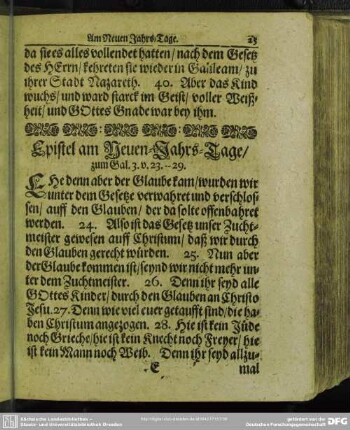 Am Neuen Jahrs-Tage. 25
da sie es alles vollendet hatten / nach dem Gesetz
des HErrn / kehreten sie wieder in Galileam / zu
ihrer Stadt Nazareth. 40. Aber das Kind
wuchs / und ward starck im Geist / voller Weiß-
heit / und GOttes Gnade war bey ihm.
Epistel am Neuen-Jahrs-Tage /
zum Gal. 3. v. 23.-29.
EHe denn aber der Glaube kam / wurden wir
unter dem Gesetze verwahret und verschlos-
sen / auff den Glauben / der da solte offenbahret
werden. 24. Also ist das Gesetz unser Zucht-
meister gewesen auff Christum / daß wir durch
den Glauben gerecht würden. 25. Nun aber
der Glaube kommen ist / seynd wir nicht mehr un-
ter dem Zuchtmeister. 26. Denn ihr seyd alle
GOttes Kinder / durch den Glauben an Christo
Jesu. 27. Denn wie viel euer getaufft sind / die ha-
ben Christum angezogen. 28. Hie ist kein Jüde
noch Grieche / hie ist kein Knecht noch Freyer / hie
ist kein Mann noch Weib. Denn ihr seyd allzu-
E mal